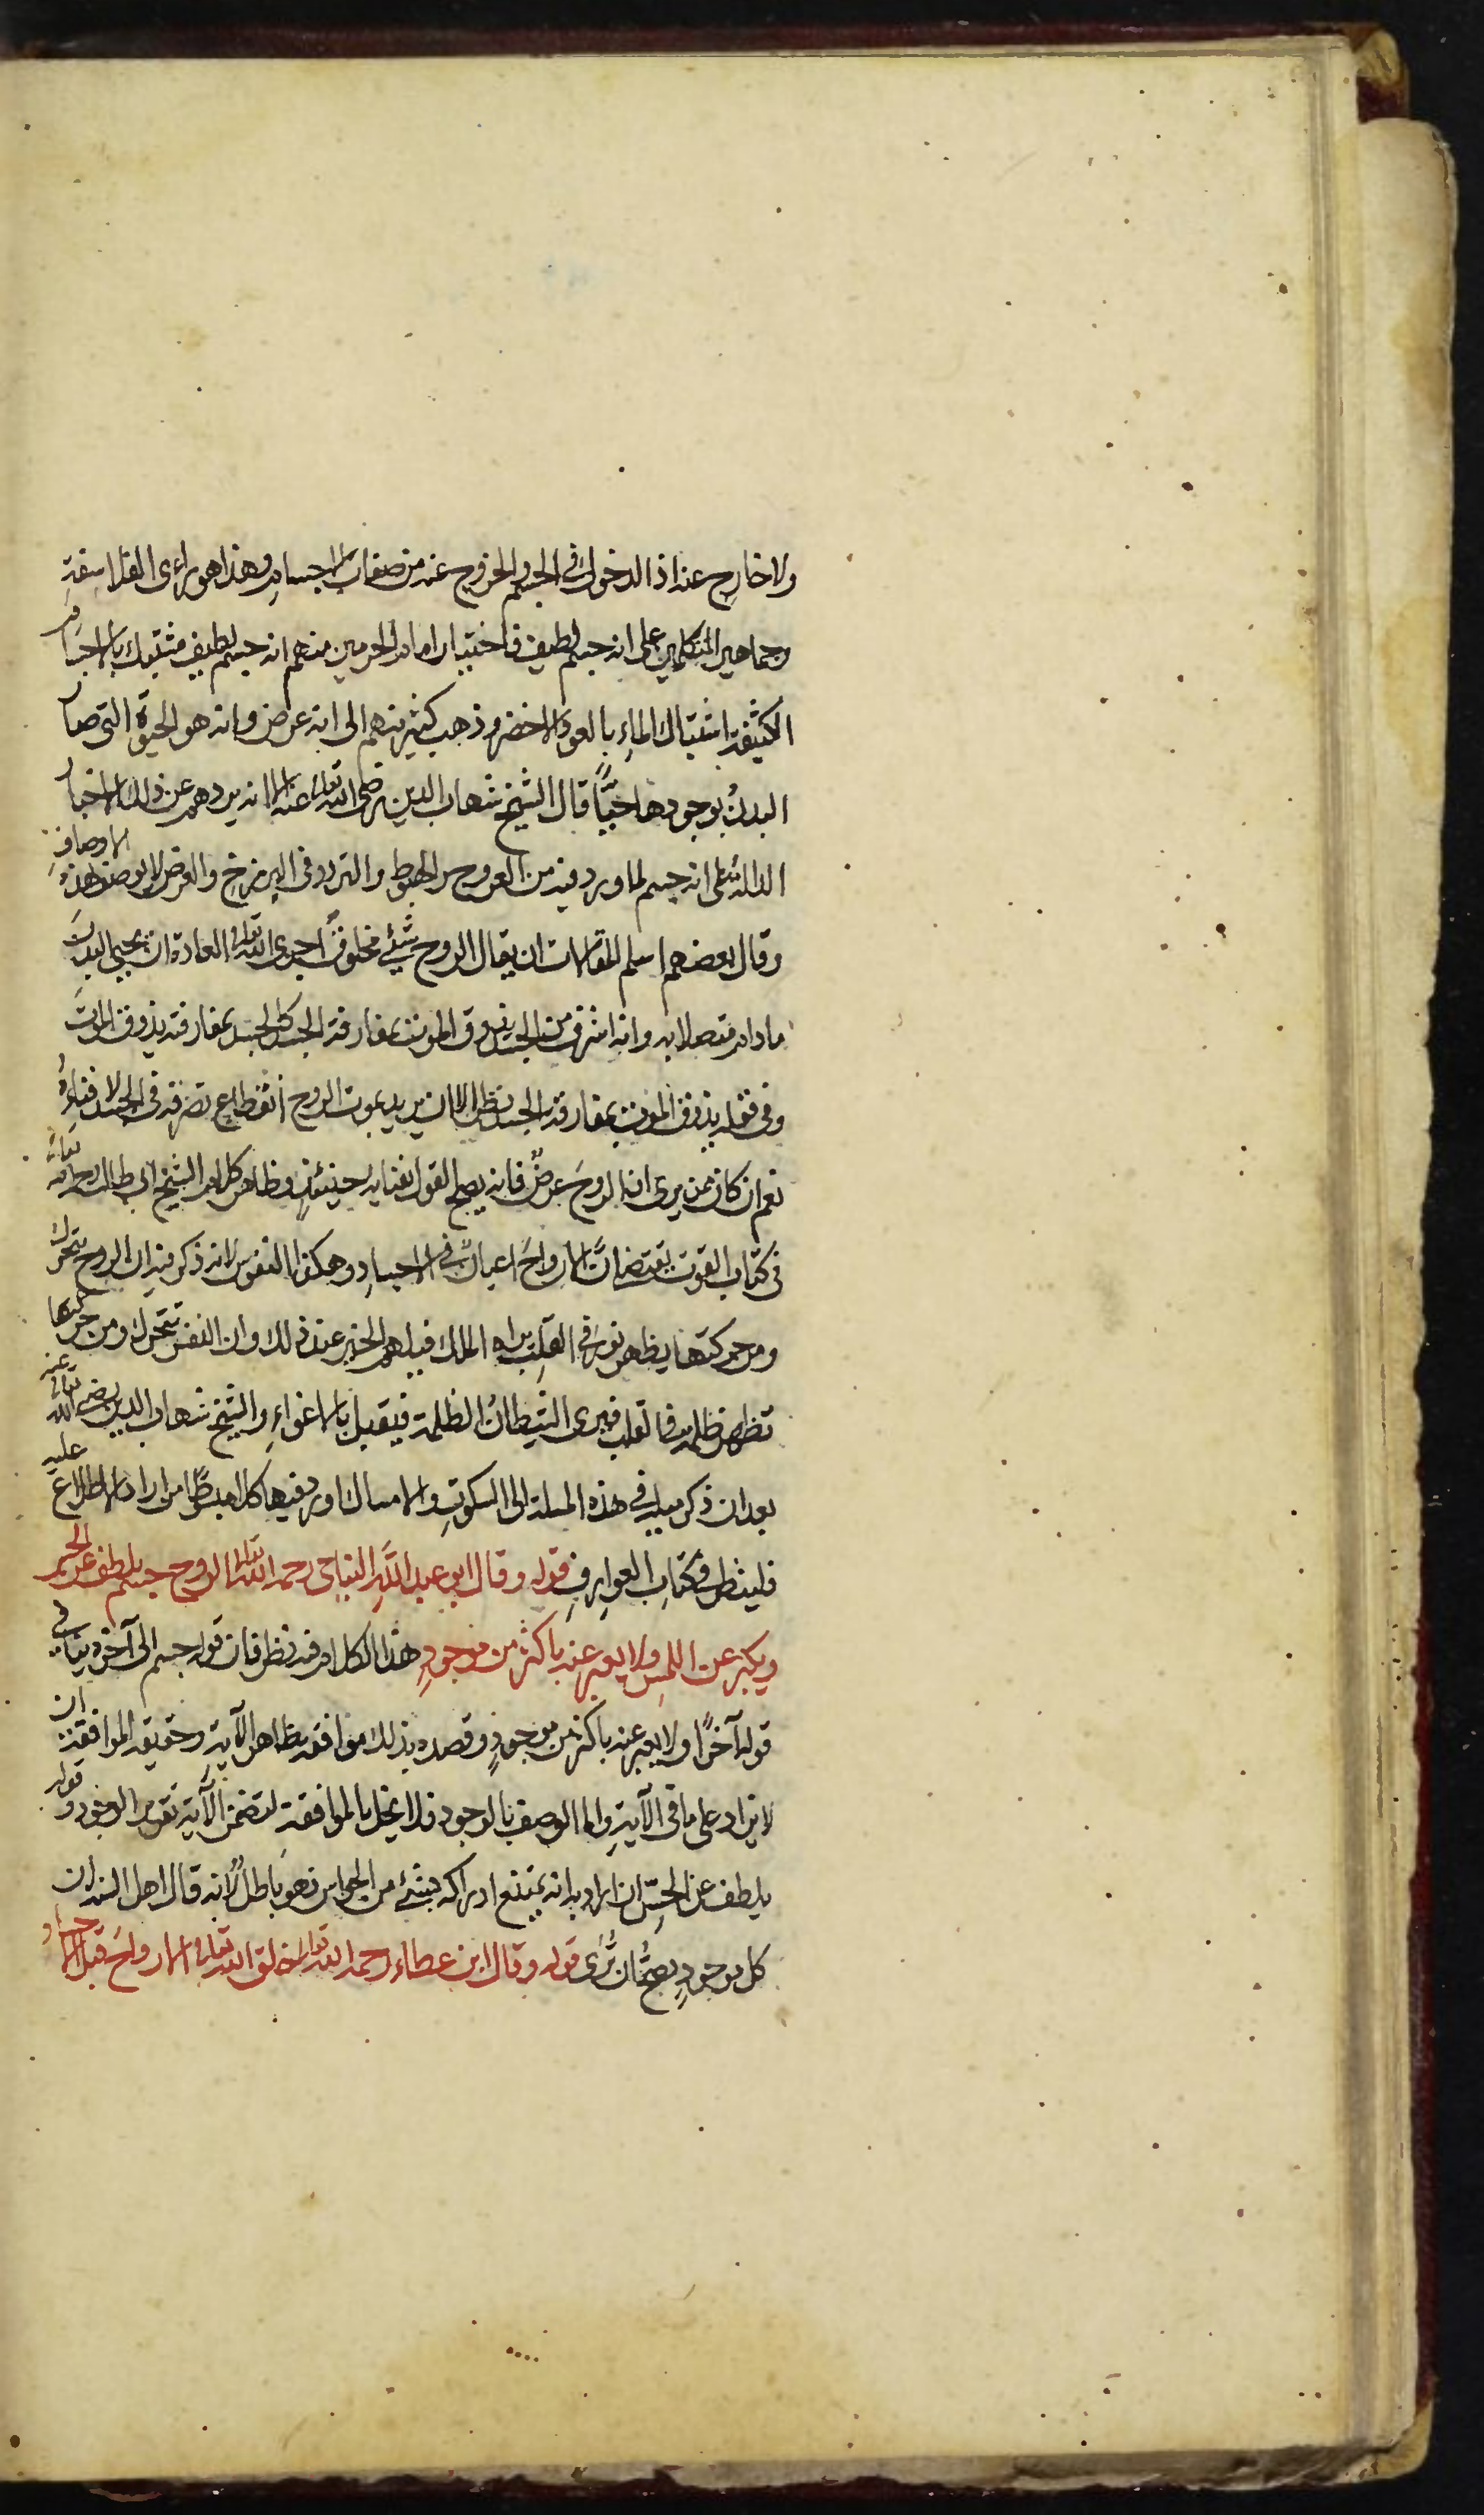 ولا خارج عنه اذ الدخول فى الجسم والخروج عنه من صفات الاجسام وهذا هو راى الفلاسفة
وجماهير المتكلمين على انه جسم لطيف فاختيار امام الحرمين منهم انه جسم لطيف مشتبك بالاجسام
الكثيفة اشتباك الماء بالعود الاخضر وذهب كثير منهم الى انه عرض وانه هو الحيوة التى صار
البدن بوجودها حيّا قال الشيخ شهاب الدين رضى الله تعالى عنه الا انه يردهم عن ذلك الاخبار
الدالة على انه جسم لما ورد فيه من العروج والهبوط والتردد فى البرزخ والعرض لا يوصف بهذه الاوصاف
وقال بعضهم اسلم المقالات ان يقال الروح شئ مخلوق اجرى الله تعالى العادة ان يحيى البدن
ما دام متصلا به وانه اشرف من الجسد يذوق الموت بمفارقة الجسد كالجسد بمفارقته يذوق الموت
وفى قوله يذوق الموت بمفارقة الجسد نظر الا ان يريد بموت الروح انقطاع تصرفه فى الجسد لا فناؤه
نعم ان كان ممن يرى ان الروح عرض فانه يصح القول بفنايه حينئذ وظاهر كلام الشيخ ابى طالب رحمه الله تعالى
فى كتاب القوت يقتضى انّ الارواح اعيان فى الاجساد وهكذا النفوس لانه ذكر فيه ان الروح تتحرك
ومن حركتها يظهر نور فى القلب يراه الملك فيلهم الخير عند ذلك وان النفس تتحرك ومن حركتها
تظهر ظلمة فى القلب فيرى الشيطان الظلمة فيقبل بالاغواء والشيخ شهاب الدين رضى الله تعالى عنه
بعد ان ذكر ميله فى هذه المسلة الى السكوت والامساك اورد فيها كلاما مبسوطا من اراد الاطلاع عليه
فلينظر فى كتاب العوارف قوله وقال ابن عبد الله النباجى رحمه الله تعالى الروح جسم يلطف عن الحس
ويكبر عن اللمس ولا يعبر عنه باكثر من موجود هذا الكلام فيه نظر فان قوله جسم الى آخره ينافى
قوله آخرًا ولا يعبر عنه باكثر من موجود وقصده بذلك موافقة بظاهر الآية وحقيقة الموافقة ان
لا يزاد على ما فى الآية واما الوصف بالوجود فلا يخل بالموافقة لتضمن الآية تقرير الوجود وقوله
يلطف عن الحسّ ان اراد به انه يمتنع ادراكه بشئ من الحواس فهو باطل لانه قال اهل السنة ان
كل موجود يصحّ ان تُرى قوله وقال ابن عطاء رحمه الله تعالى خلق الله تعالى الارواح قبل الاجساد